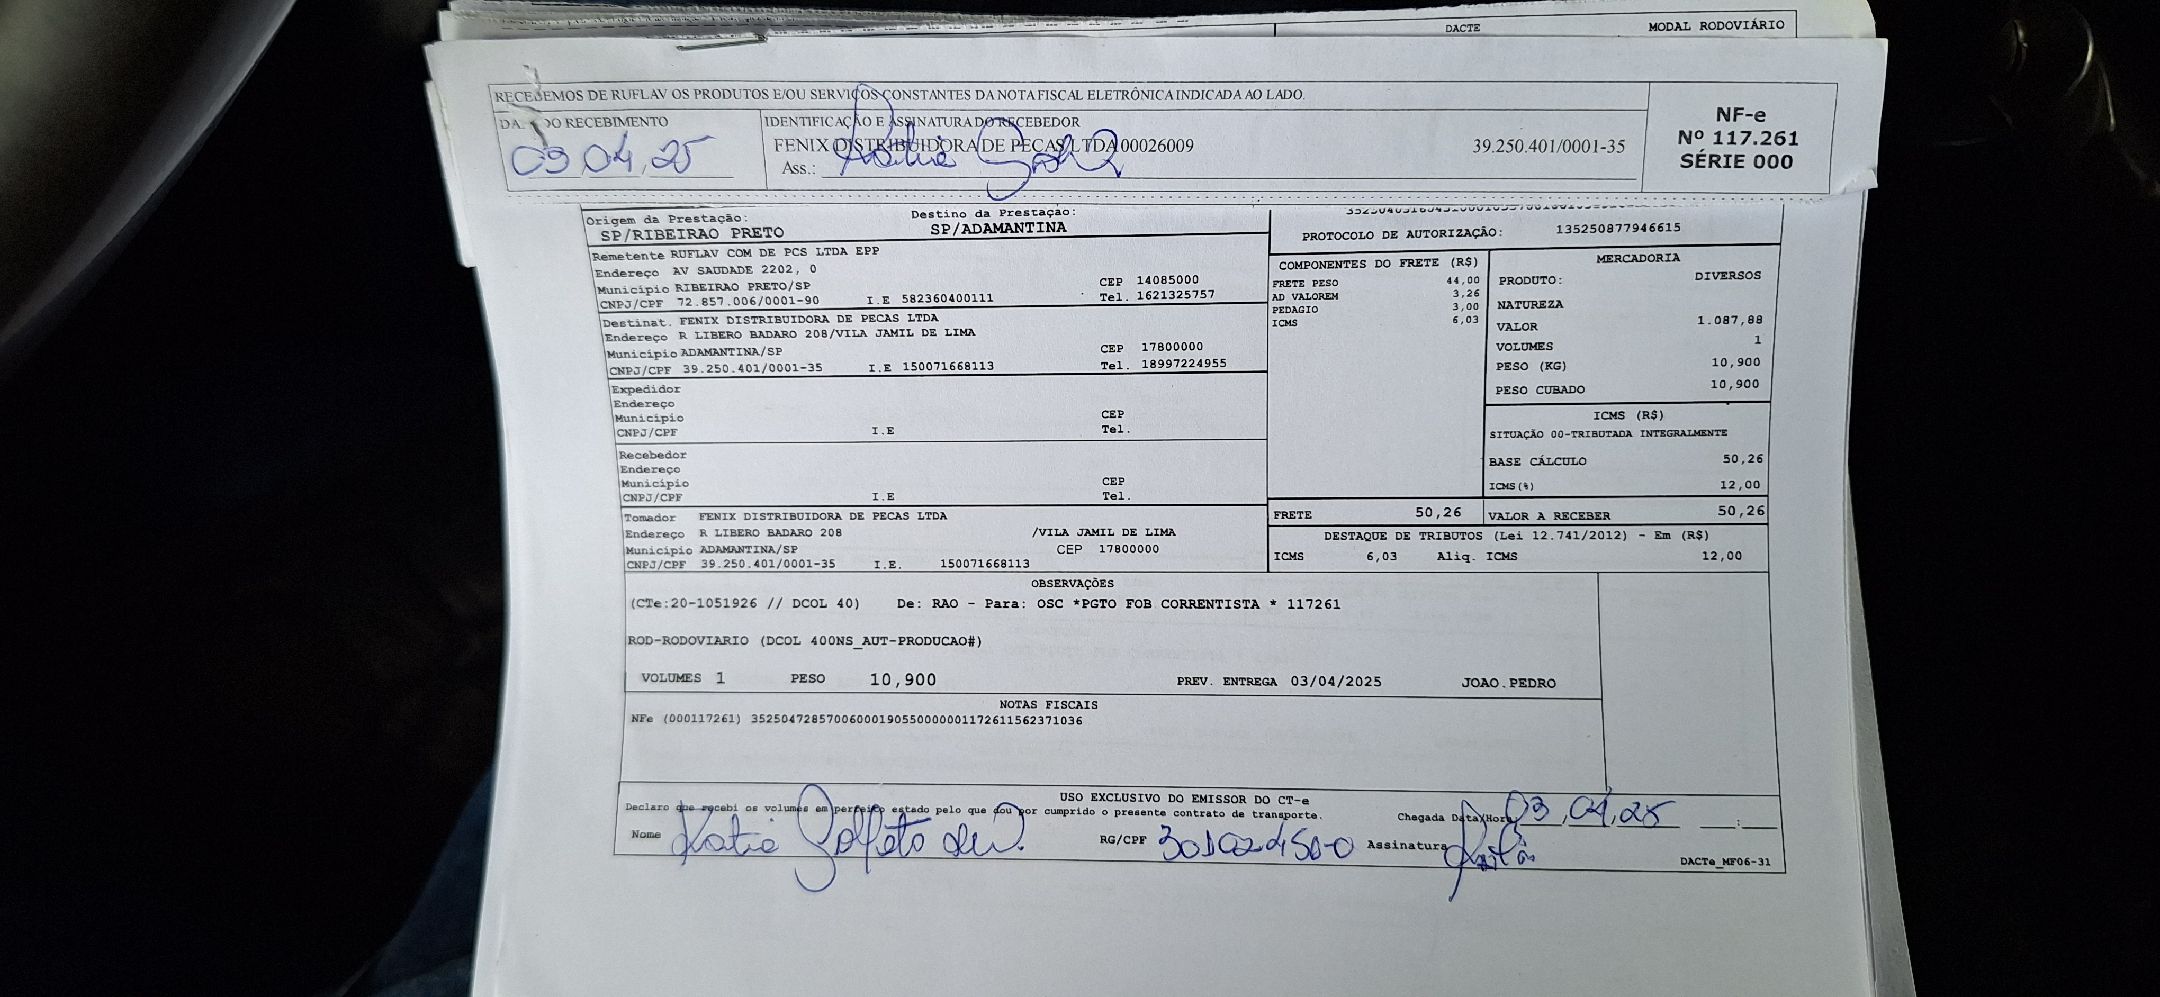 DACTE MODAL RODOVIÁRIO
RECEBEMOS DE RUFLAV OS PRODUTOS E/OU SERVIÇOS CONSTANTES DA NOTA FISCAL ELETRÔNICA INDICADA AO LADO.
DO RECEBIMENTO
03 04, 25
IDENTIFICAÇÃO E ASSINATURA DO RECEBEDOR
FENIX DISTRIBUIDORA DE PECAS LTDA 00026009 39.250.401/0001-35
Ass.: Katia
NF-e
Nº 117.261
SÉRIE 000
Origem da Prestação: Destino da Prestação:
SP/RIBEIRAO PRETO SP/ADAMANTINA
PROTOCOLO DE AUTORIZAÇÃO: 135250877946615
Remetente RUFLAV COM DE PCS LTDA EPP
Endereço AV SAUDADE 2202, 0
Município RIBEIRAO PRETO/SP CEP 14085000
CNPJ/CPF 72.857.006/0001-90 I.E 582360400111 Tel. 1621325757
Destinat. FENIX DISTRIBUIDORA DE PECAS LTDA
Endereço R LIBERO BADARO 208/VILA JAMIL DE LIMA
Município ADAMANTINA/SP CEP 17800000
CNPJ/CPF 39.250.401/0001-35 I.E 150071668113 Tel. 18997224955
Expedidor
Endereço
Município CEP
CNPJ/CPF I.E Tel.
Recebedor
Endereço
Município CEP
CNPJ/CPF I.E Tel.
Tomador FENIX DISTRIBUIDORA DE PECAS LTDA
Endereço R LIBERO BADARO 208 /VILA JAMIL DE LIMA
Município ADAMANTINA/SP CEP 17800000
CNPJ/CPF 39.250.401/0001-35 I.E. 150071668113
COMPONENTES DO FRETE (R$)
FRETE PESO 44,00
AD VALOREM 3,26
PEDAGIO 3,00
ICMS 6,03
MERCADORIA
PRODUTO: DIVERSOS
NATUREZA
VALOR 1.087,88
VOLUMES 1
PESO (KG) 10,900
PESO CUBADO 10,900
ICMS (R$)
SITUAÇÃO 00-TRIBUTADA INTEGRALMENTE
BASE CÁLCULO 50,26
ICMS(%) 12,00
FRETE 50,26 VALOR A RECEBER 50,26
DESTAQUE DE TRIBUTOS (Lei 12.741/2012) - Em (R$)
ICMS 6,03 Aliq. ICMS 12,00
OBSERVAÇÕES
(CTe:20-1051926 // DCOL 40) De: RAO - Para: OSC *PGTO FOB CORRENTISTA * 117261
ROD-RODOVIARIO (DCOL 400NS_AUT-PRODUCAO#)
VOLUMES 1 PESO 10,900 PREV. ENTREGA 03/04/2025 JOAO.PEDRO
NOTAS FISCAIS
NFe (000117261) 35250472857006000190550000001172611562371036
USO EXCLUSIVO DO EMISSOR DO CT-e
Declaro que recebi os volumes em perfeito estado pelo que dou por cumprido o presente contrato de transporte.
Chegada Data/Hora 03, 04, 25 :
Nome Katia RG/CPF Assinatura
DACTe_MF06-31